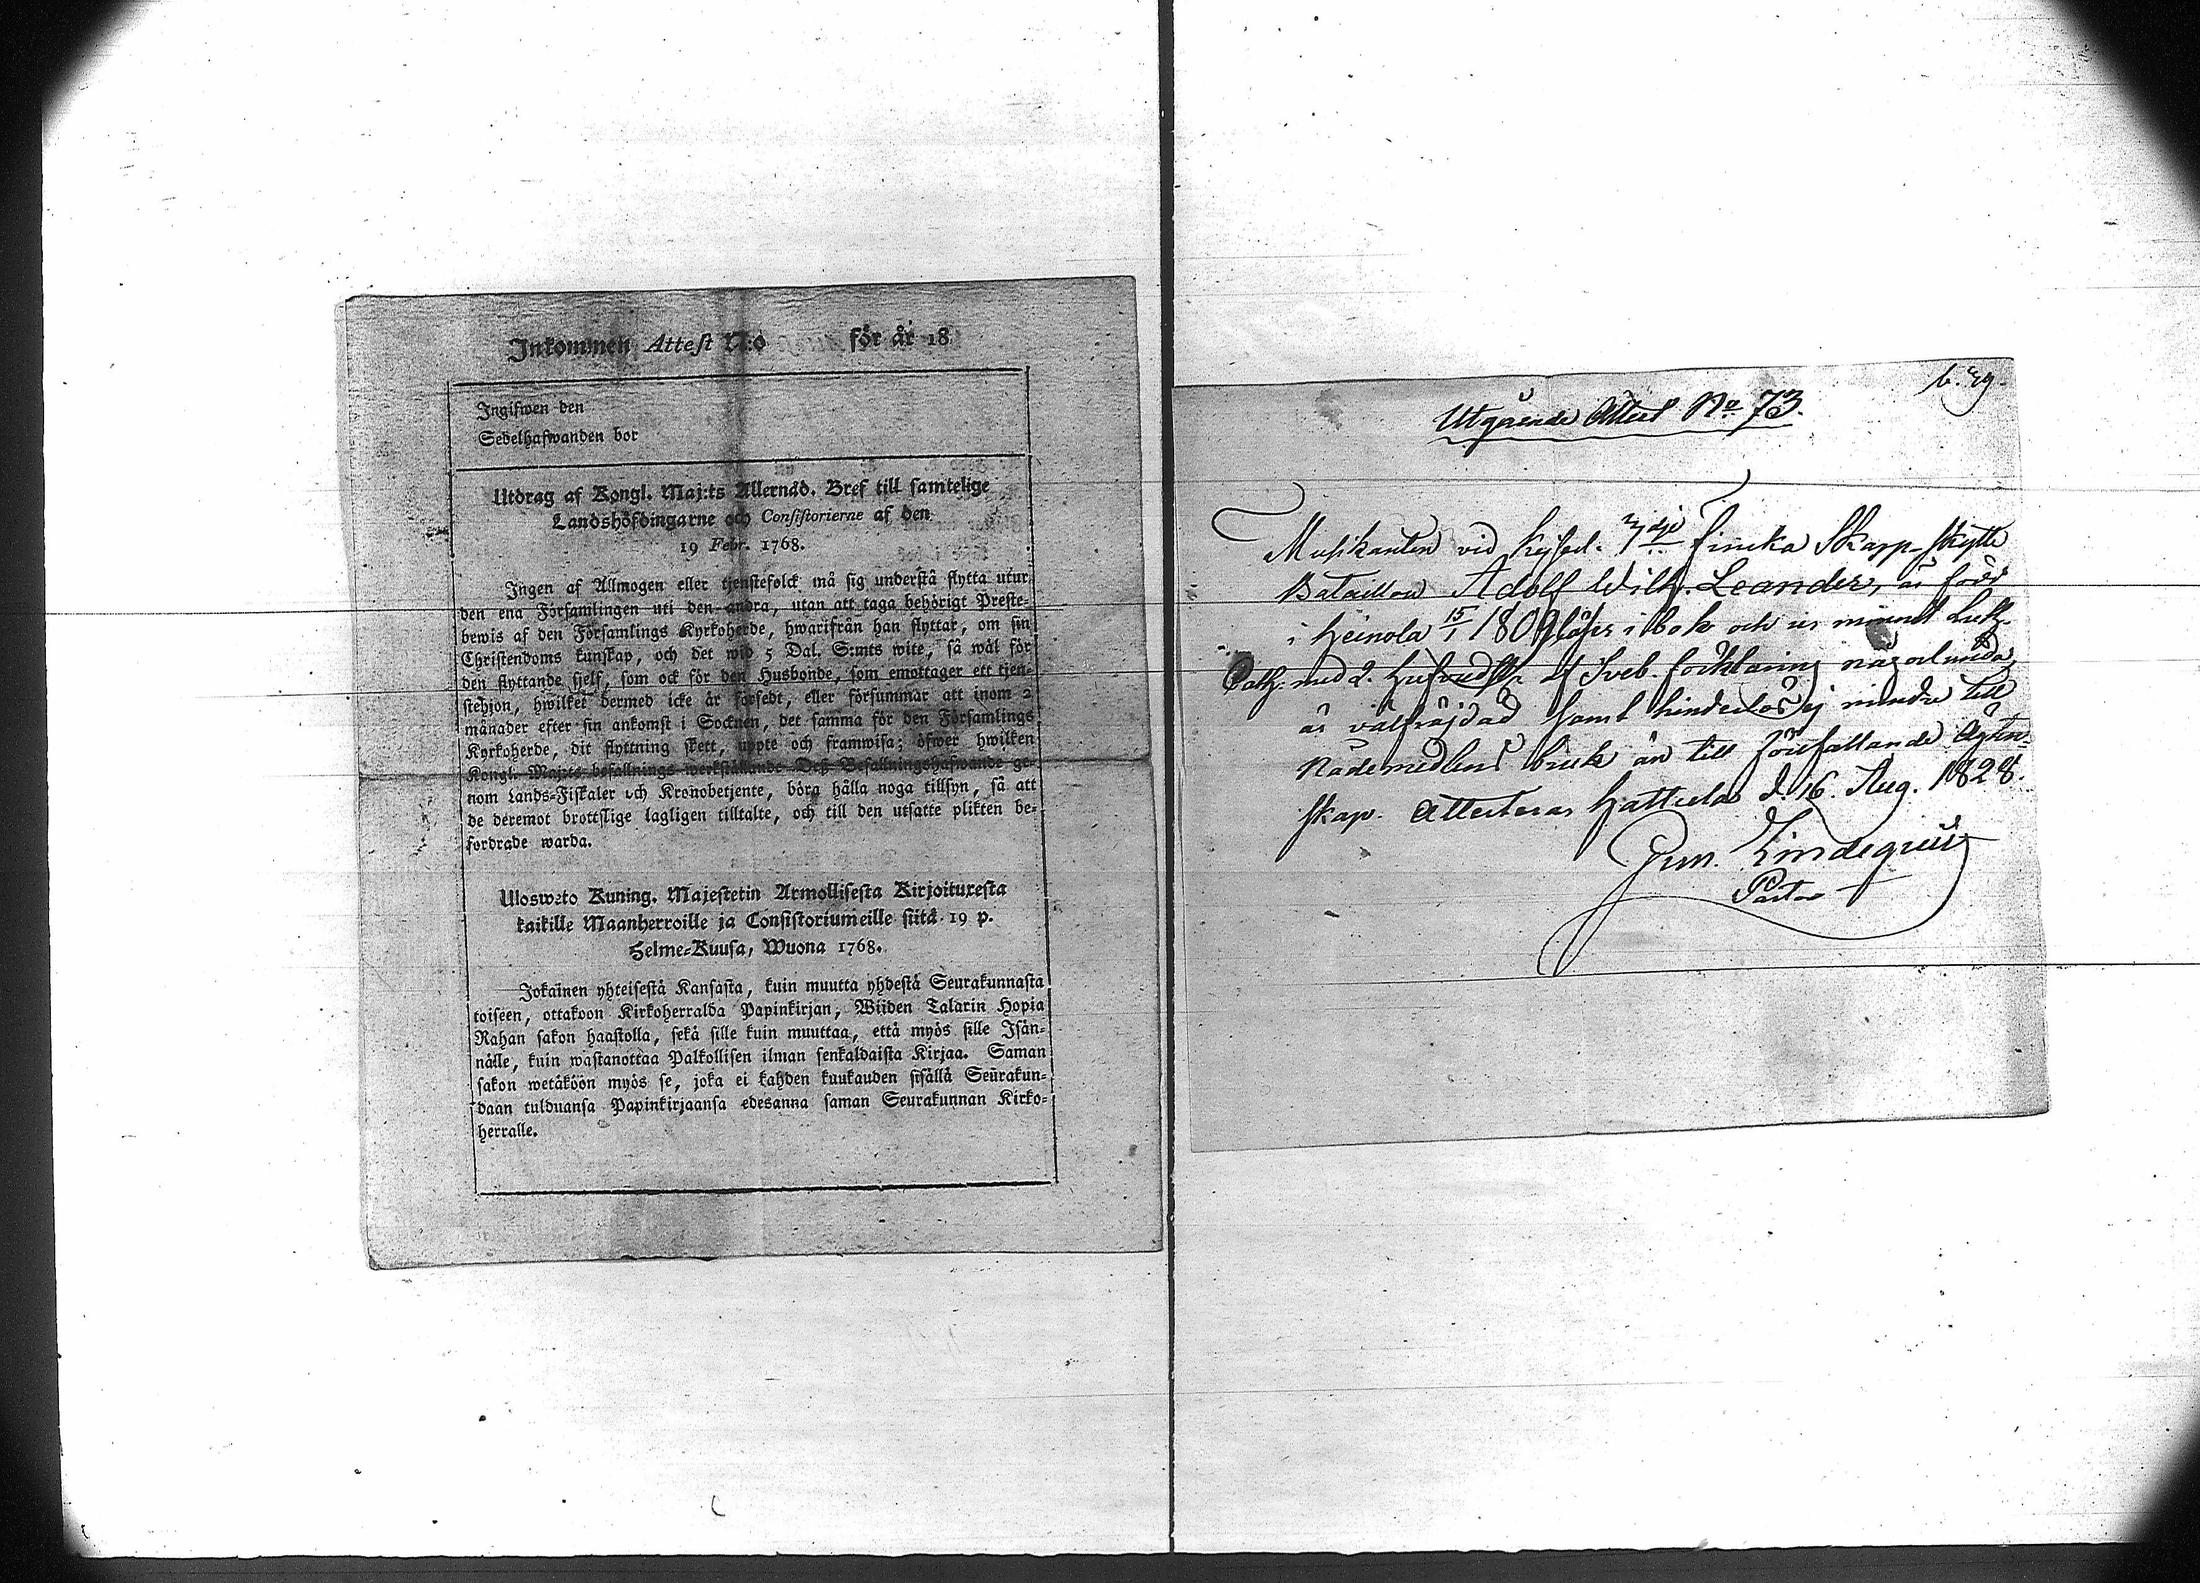 Inkommen Attest N:o för år 18
Ingifwen den
Sedelhafwanden bor
Utdrag af Kongl. Maj:ts Allernåd. Bref till samtelige
Landshöfdingarne och Consistorierne af den
19 Febr. 1768.
Ingen af Allmogen eller tjenstefolck må sig understå flytta utur
den ena Församlingen uti den andra, utan att taga behörigt Preste-
bewis af den Församlings Kyrkoherde, hwarifrån han flyttar, om sin
Christendoms kunskap, och det wid 5 Dal. S:mts wite, så wäl för
den flyttande sjelf, som ock för den Husbonde, som emottager ett tjen-
stehjon, hwilket dermed icke är försedt, eller försummar att inom 2
månader efter sin ankomst i Socknen, det samma för den Församlings
Kyrkoherde, dit flyttning skett, uppte och framwisa; öfwer hwilken
Kongl. Maj:ts befallnings werkställande Deß Befallningshafwande ge-
nom Lands-Fiskaler och Kronobetjente, böra hålla noga tillsyn, så att
de deremot brottslige lagligen tilltalte, och till den utsatte plikten be-
fordrade warda.
Ulosweto Kuning. Majestetin Armollisesta Kirjoituxesta
kaikille Maanherroille ja Consistoriumeille siitä 19 p.
Helme-Kuusa, Wuona 1768.
Jokainen yhteisestä Kansasta, kuin muutta yhdestä Seurakunnasta
toiseen, ottakoon Kirkoherralda Papinkirjan, Wiiden Talarin Hopia
Rahan sakon haastolla, sekä sille kuin muuttaa, että myös sille Isän-
nälle, kuin wastanottaa Palkollisen ilman senkaldaista Kirjaa. Saman
sakon wetäköön myös se, joka ei kahden kuukauden sisällä Seurakun-
daan tulduansa Papinkirjaansa edesanna saman Seurakunnan Kirko-
herralle.
Utgående Attest No 73.
Musikanten vid Kejserl. 3dje Finska Skarp-skytte
Bataillon Adolf Wilh. Leander, är född
i Heinola 15/1 1809 läser i bok och ur minnet Luth.
Cath. med 2. hufvudst. af Sveb. förklaring någorlunda,
är välfräjdad samt hinderlös ej mindre till
Nådemedlens bruk än till förefallande Ägten-
skap. Attesteras Hattula d. 16. Aug. 1828.
Lindequist
Pastor